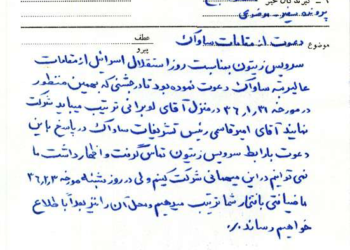 گیرندگان خبر
موضوع دعوت از مقامات ساواک
عطف
پیرو
سرویس زیتون بمناسبت روز استقلال اسرائیل از مقامات
عالیرتبه ساواک دعوت نموده بود تا در جشنی که بهمین منظور
در مورخه در منزل آقای لوبرانی ترتیب میابد شرکت
نمایند آقای امیرقاسمی رئیس تشریفات ساواک در پاسخ باین
دعوت با رابط سرویس زیتون تماس گرفت و اظهار داشت ما
نمی توانیم در این میهمانی شرکت کنیم ولی در روز شنبه مورخه ۳۶٫۲٫۳
ما ضیافتی بافتخار شما ترتیب میدهیم و محل آن را نیز بعداً باطلاع
خواهیم رساند